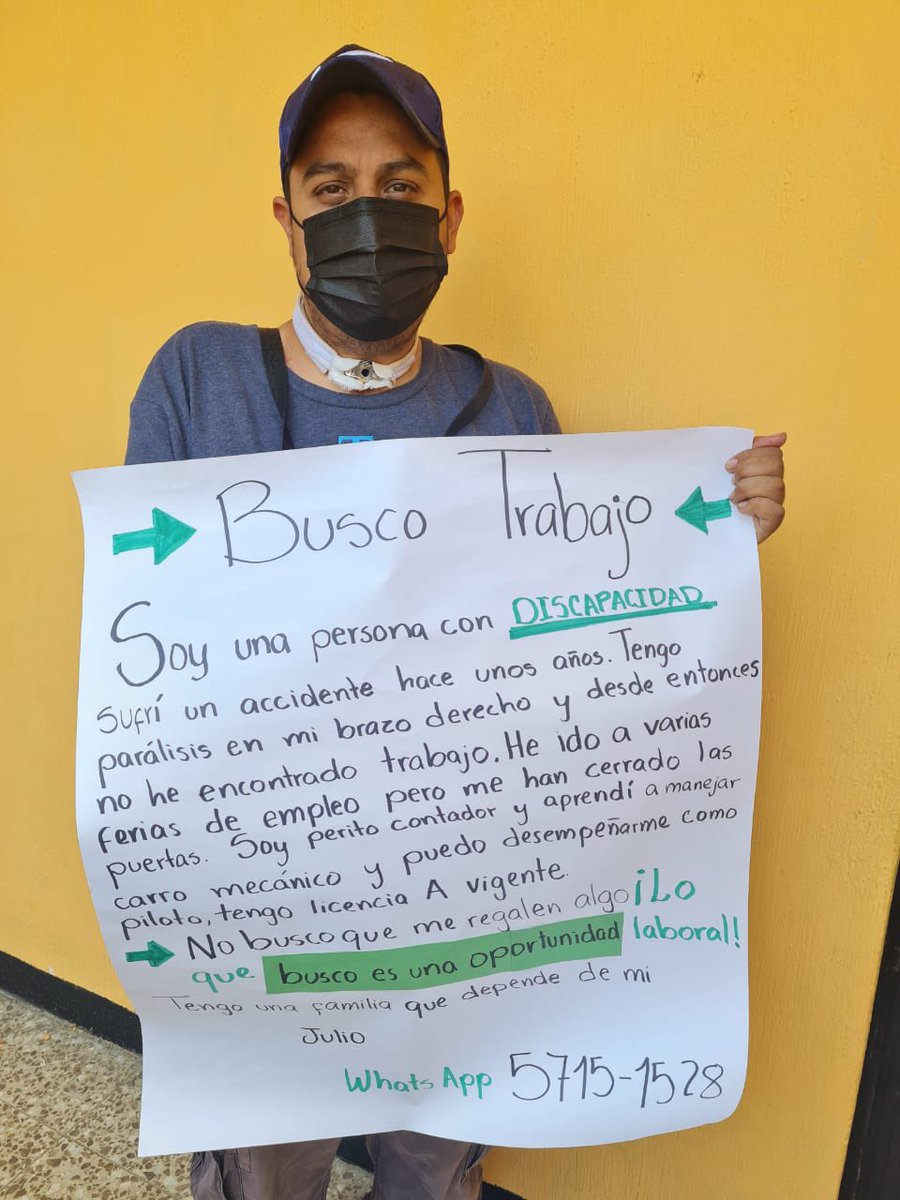 Busco Trabajo
Soy una persona con DISCAPACIDAD
Sufrí un accidente hace unos años. Tengo
parálisis en mi brazo derecho y desde entonces
no he encontrado trabajo. He ido a varias
ferias de empleo pero me han cerrado las
puertas. Soy perito contador y aprendí a manejar
carro mecánico y puedo desempeñarme como
piloto, tengo licencia A vigente.
No busco que me regalen algo ¡Lo
que busco es una oportunidad laboral!
Tengo una familia que depende de mi
Julio
WhatsApp 5715-1528